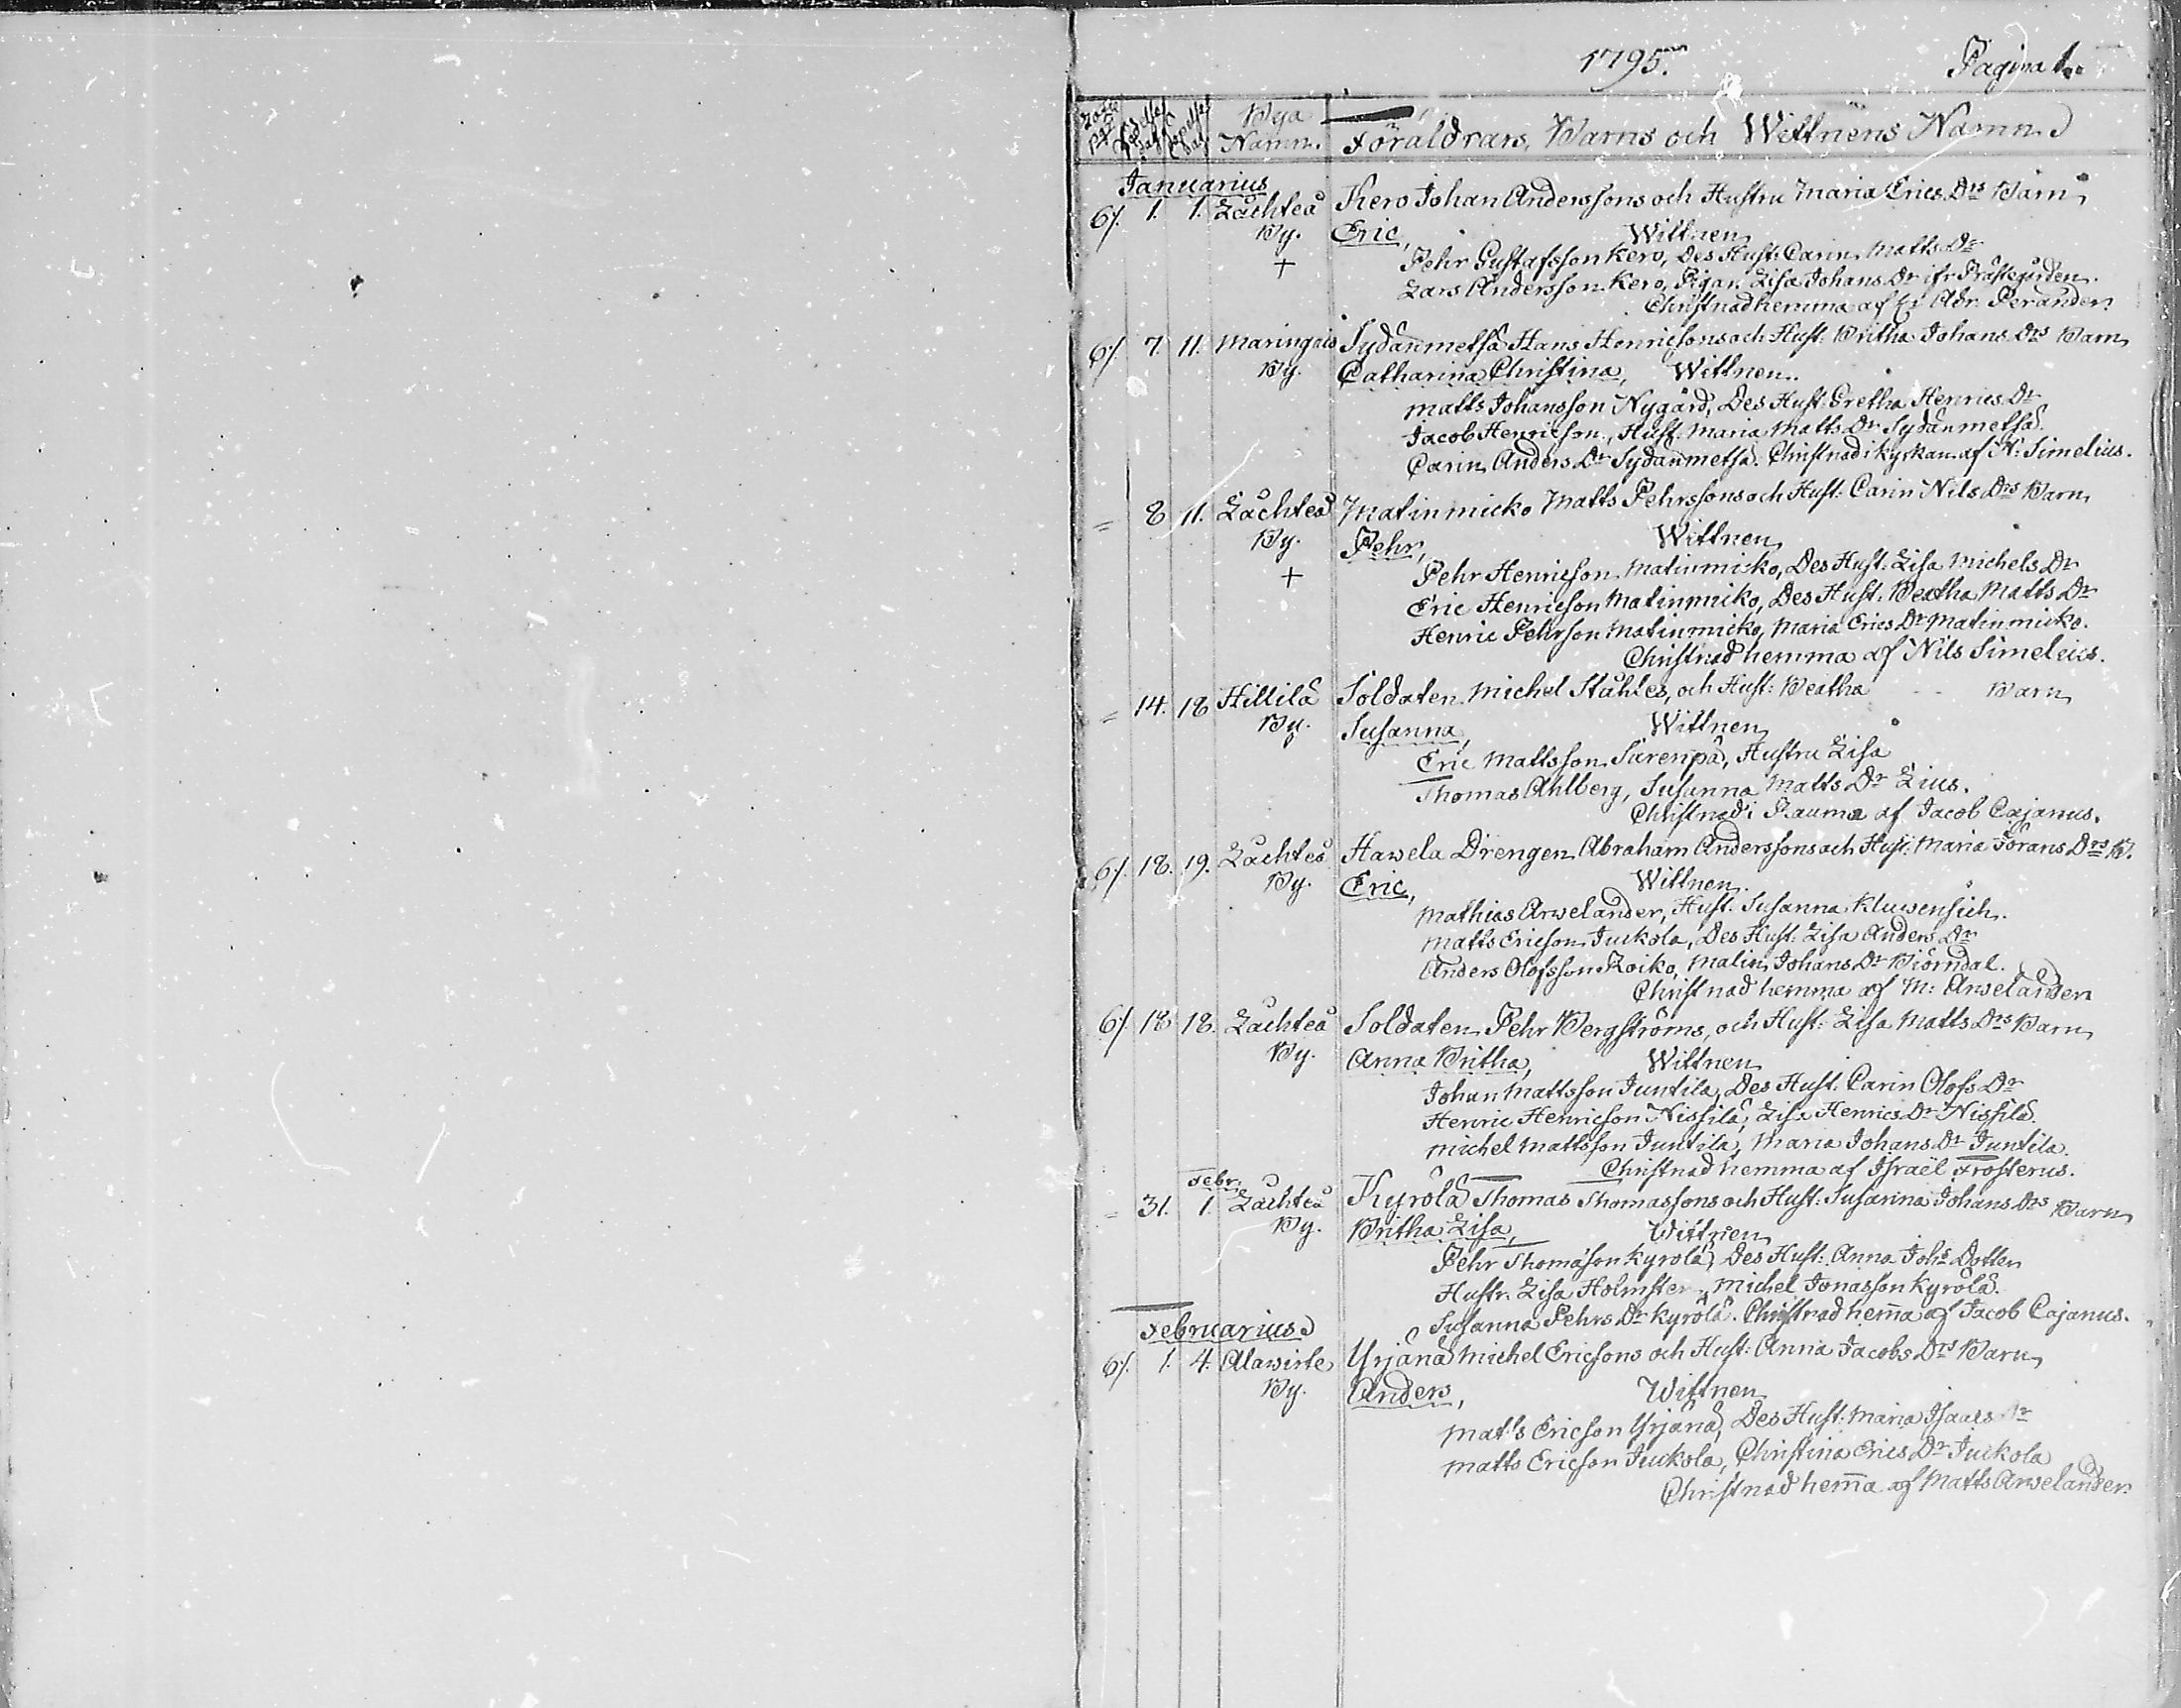 1795. Pagina 1.
Bya
Namn. Föräldrars, Barns och Wittnens Namn
Januarius
6/. 1. 1. Låchteå Kero Johan Anderssons och Hustru Maria Erics Drs Barn
By. Eric, Wittnen
+ Pehr Gustafsson Kero, Des Hust: Carin Matts Dr
Lars Andersson Kero, Pigan Lisa Johans Dr ifr Prästegården.
Christnad hemma af Er. Adr. Perander.
6/. 7. 11. Maringais Sydänmetsä Hans Henricsons och Hust: Britha Johans Drs Barn
By. Catharina Christina, Wittnen.
Matts Johansson Nygård, Des Hust: Gretha Henrics Dr
Jacob Henricson, Hust. Maria Matts Dr Sydänmetsä.
Carin Anders Dr Sydänmetsä. Christnad i kyrkan af N: Simelius.
= 8 11. Låchteå Matinmicko Matts Pehrssons och Hust: Carin Nils Drs Barn
By. Pehr, Wittnen
+ Pehr Henricson Matinmicko, Des Hust: Lisa Michels Dr
Eric Henricson Matinmicko, Des Hust. Beatha Matts Dr
Henric Pehrson Matinmicko, Maria Erics Dr Matinmicko.
Christnad hemma af Nils Simelius.
= 14. 18 Hillilä Soldaten Michel Ståhles, och Hust: Beatha Barn
By. Susanna, Wittnen
Eric Mattsson Sarenpä, Hustru Lisa
Thomas Ahlberg, Susanna Matts Dr Lius.
Christnad i Rauma af Jacob Cajanus.
6/. 18. 19. Låchteå Hawela Drengen Abraham Anderssons och Hust: Maria Jörans Drs B.
By. Eric, Wittnen.
Mathias Arwelander, Hust. Susanna Kluwensich.
Matts Ericson Juckola, Des Hust: Lisa Anders Dr
Anders Olofsson Roiko, Malin Johans Dr Biörndal.
Christnad hemma af M: Arwelander
6/. 18 18. Låchteå Soldaten Pehr Bergströms, och Hust: Lisa Matts Drs Barn
By. Anna Britha, Wittnen
Johan Mattsson Juntila, Des Hust. Carin Olofs Dr
Henric Henricson Nissilä, Lisa Henrics Dr Nissilä.
Michel Mattsson Juntila, Maria Johans Dr Juntila.
Christnad hemma af Israël Frosterus.
Febr.
= 31. 1. Låchteå Kyrölä Thomas Thomassons och Hust: Susanna Johans Drs Barn
By. Britha Lisa, Wittnen
Pehr Thomason Kyrölä, Des Hust: Anna Johs Dotter
Hustr. Lisa Holmster, Michel Jonasson Kyrölä.
Susanna Pehrs Dr Kyrölä. Christnad hem̄a af Jacob Cajanus.
Februarius
6/. 1. 4. Alawirte Yrjänä Michel Ericsons och Hust: Anna Jacobs Drs Barn
By. Anders, Wittnen
Matts Ericson Yrjänä, Des Hust: Maria Isaacs Dr
Matts Ericson Juckola, Christina Erics Dr Juckola
Christnad hem̄a af Matts Arwelander.